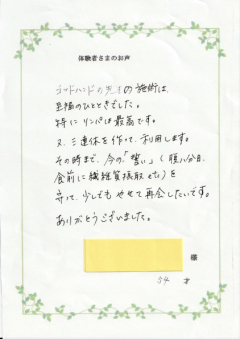 体験者さまのお声
ゴッドハンドの先生の施術は、
至福のひとときでした。
特にリンパは最高です。
又、三連休を作って、利用します。
その時まで、今の「誓い」(腹八分目、
食前に繊維質摂取etc)を
守って、少しでもやせて再会したいです。
ありがとうございました。
様
34 才